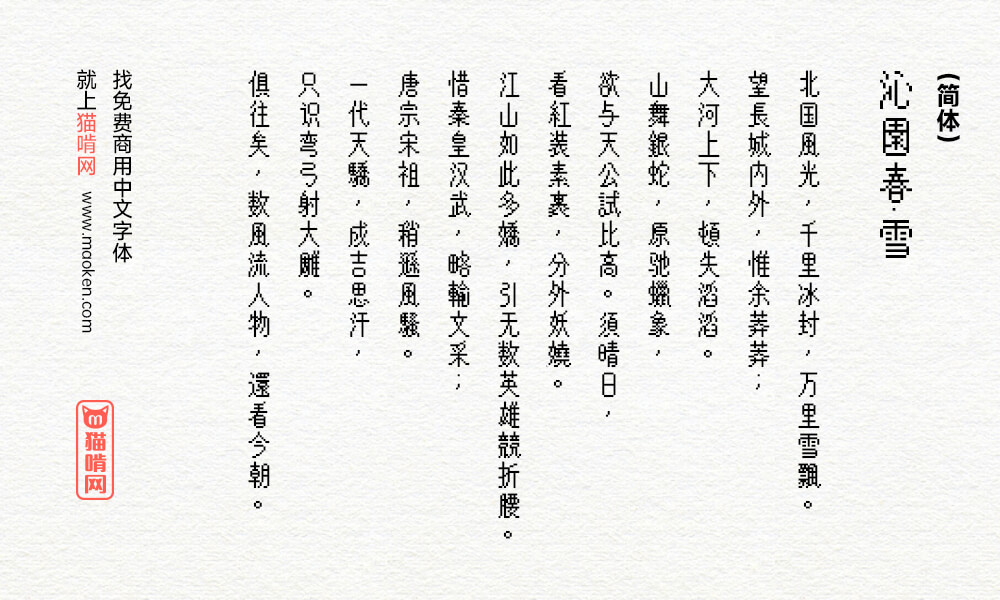 (简体)
沁園春·雪
北国風光，千里冰封，万里雪飄。
望長城内外，惟余莽莽；
大河上下，頓失滔滔。
山舞銀蛇，原驰蠟象，
欲与天公試比高。須晴日，
看紅装素裹，分外妖嬈。
江山如此多嬌，引无数英雄競折腰。
惜秦皇汉武，略輸文采；
唐宗宋祖，稍遜風騷。
一代天驕，成吉思汗，
只识弯弓射大雕。
俱往矣，数風流人物，還看今朝。
找免费商用中文字体
就上猫啃网 www.maoken.com
猫啃网